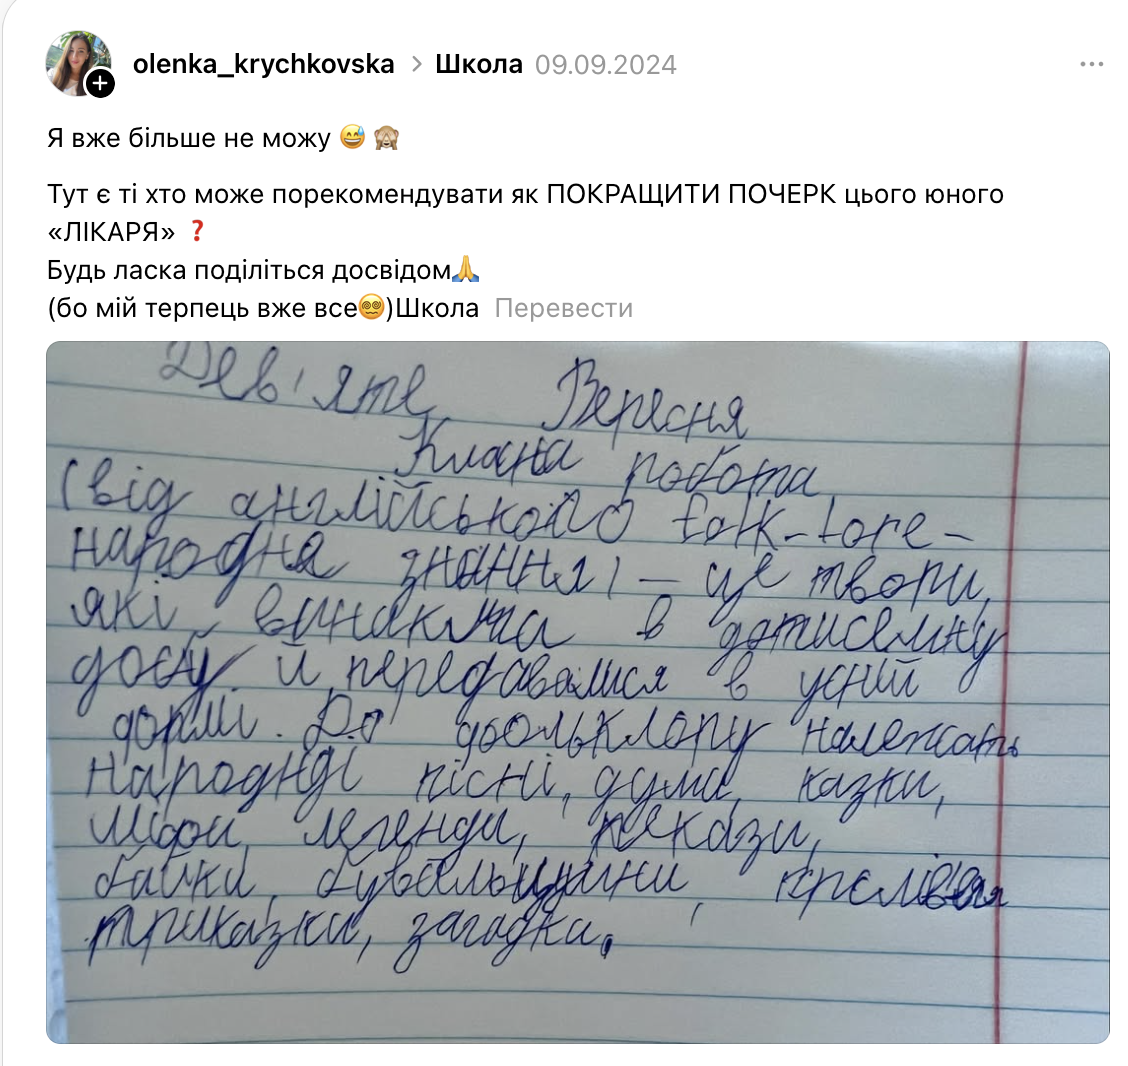 olenka_krychkovska > Школа 09.09.2024
Я вже більше не можу 😅 🙈
Тут є ті хто може порекомендувати як ПОКРАЩИТИ ПОЧЕРК цього юного
«ЛІКАРЯ» ❓
Будь ласка поділіться досвідом🙏
(бо мій терпець вже все😵‍💫)Школа Перевести
Дев'яте Вересня
Класна робота
(від англійського folk-lore-
народня знання) – це твори,
які виникма в дотисемну
доєу й передавалися в усній
формі. До фольклору належать
народнді пісні, думи, казки,
міфи, легенди, пекази,
байки, бувальщини,
приказки, загадки.